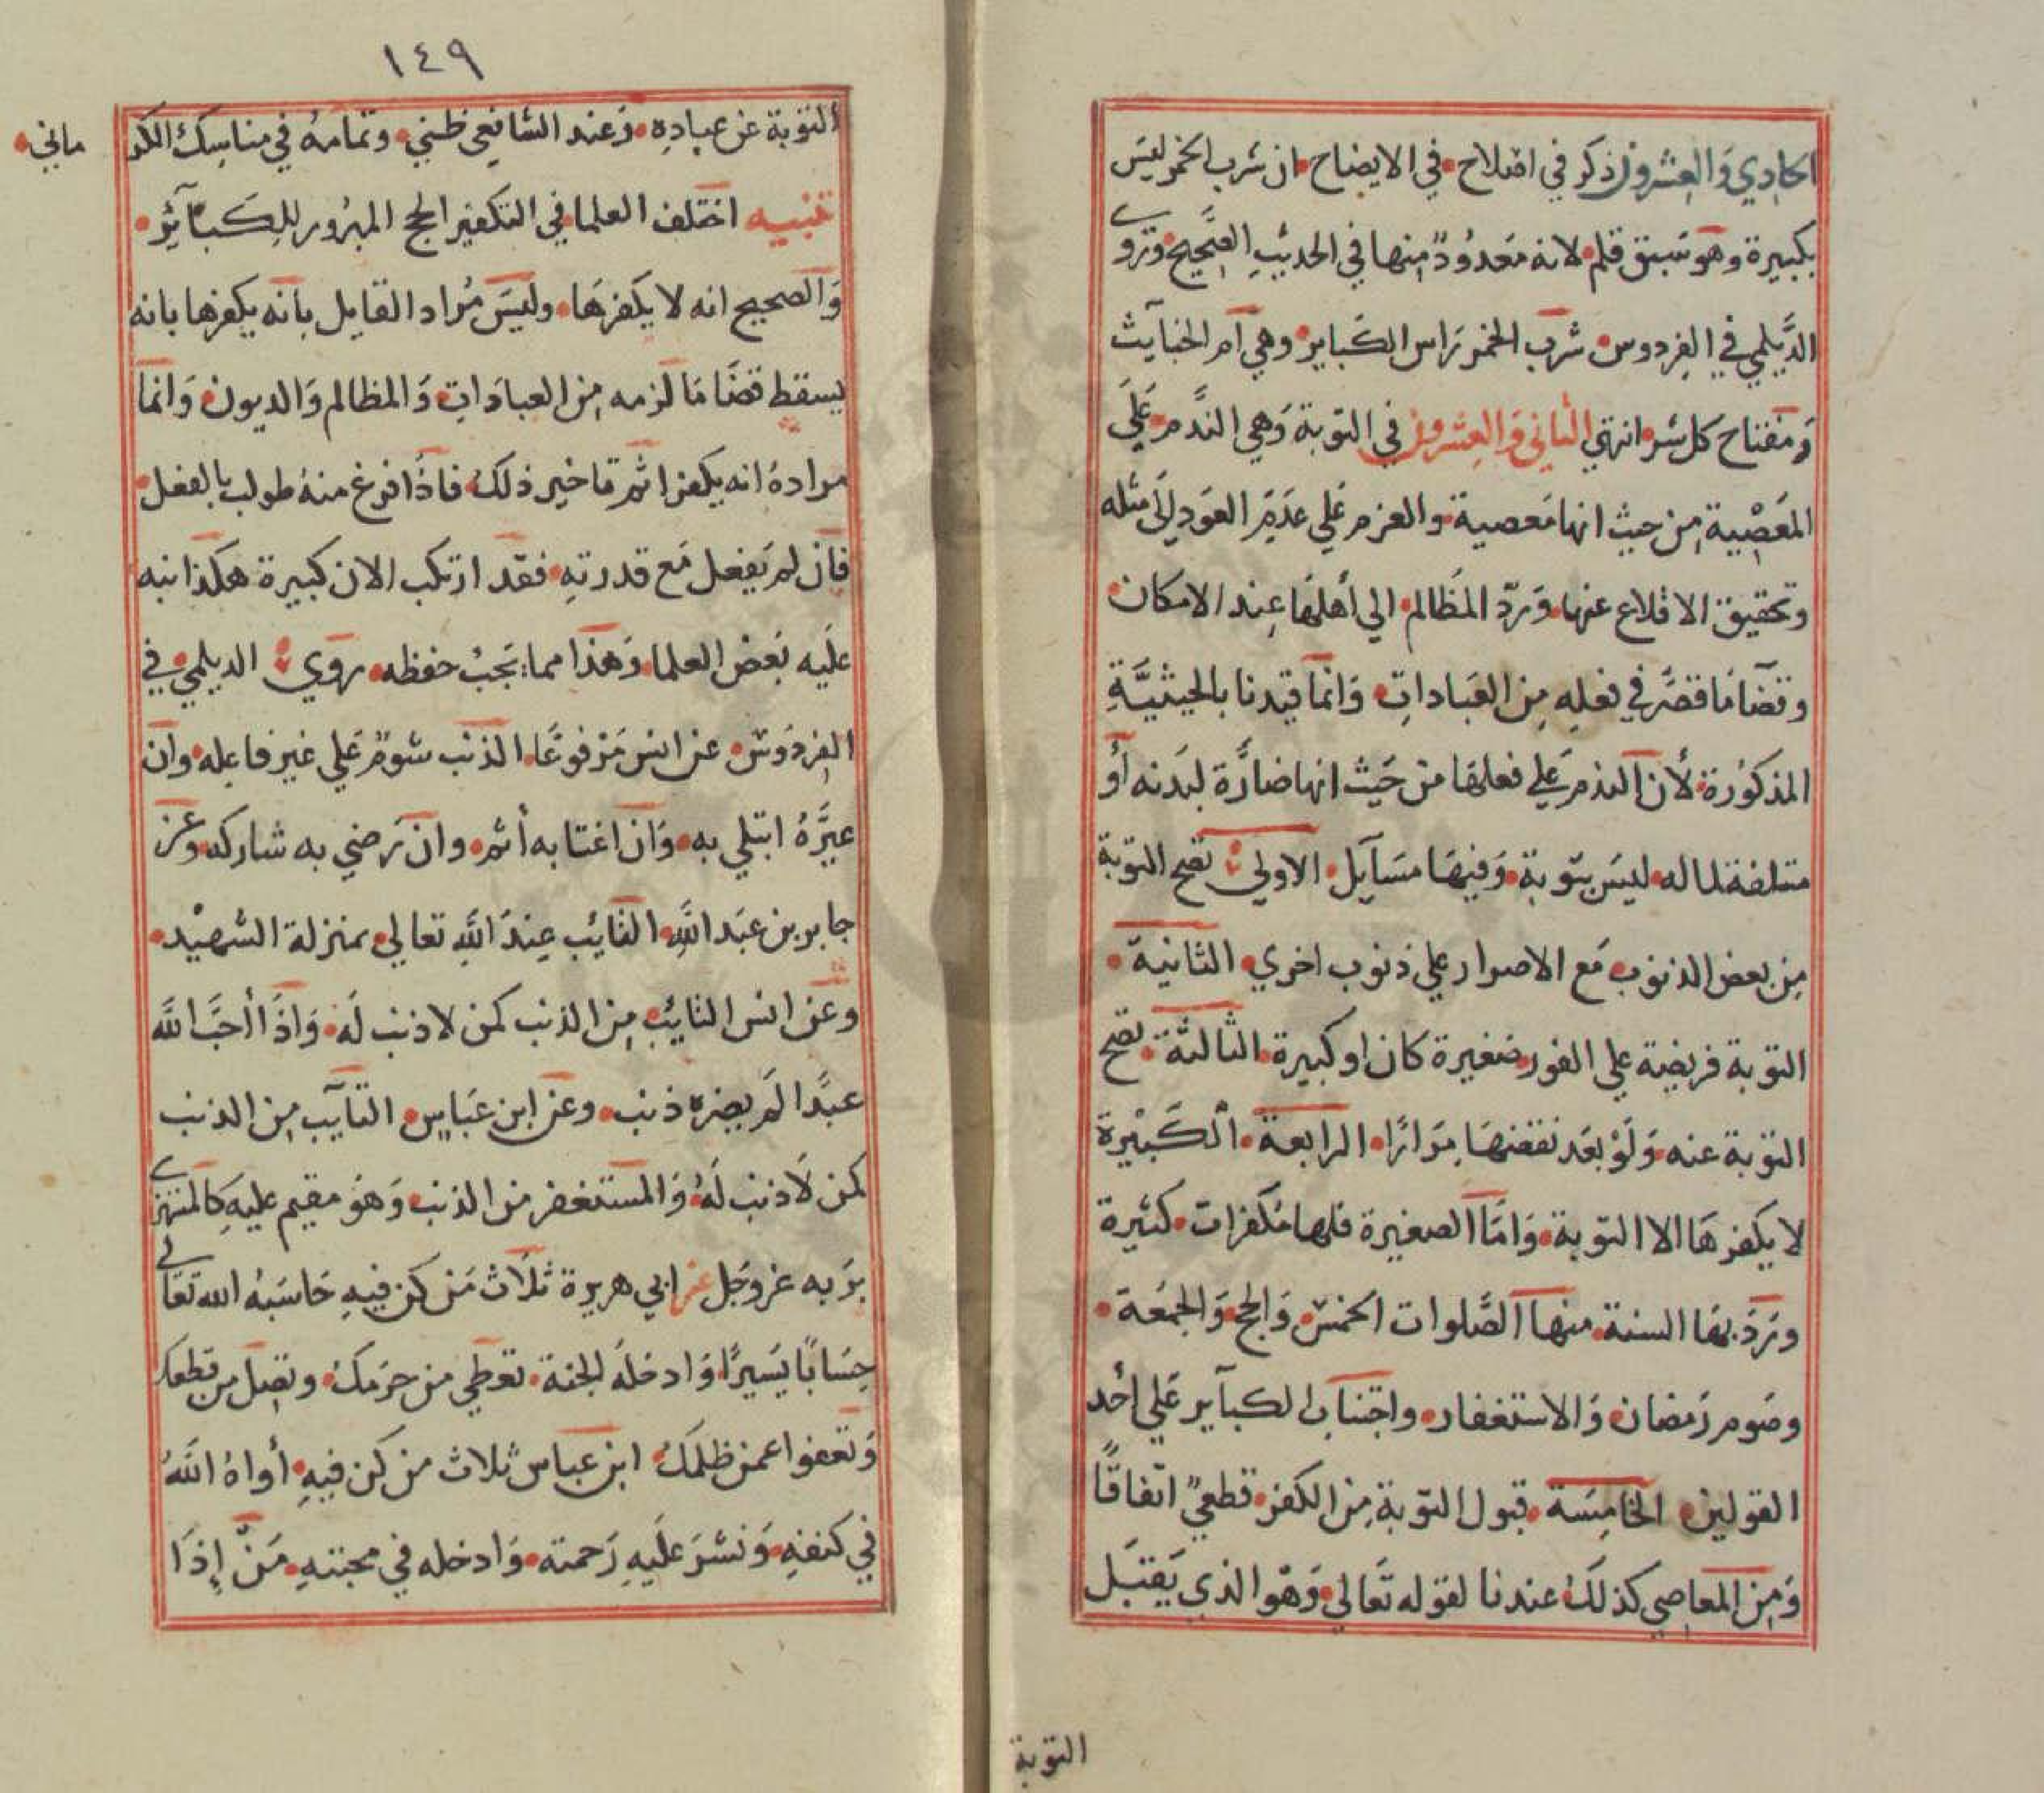 الحادي والعشرون ذكر في اصلاح في الايضاح ان شرب الخمر ليس
بكبيرة وهو سبق قلم لانه معدود منها في الحديث الصحيح وروي
الديلمي في الفردوس شرب الخمر راس الكباير وهي ام الخبآيث
ومفتاح كل شر انتهي الثاني والعشرون في التوبة وهي الندم علي
المعصية من حيث انها معصية والعزم علي عدم العود الى مثله
وتحقيق الاقلاع عنها ورد المظالم الي أهلها عند الامكان
وقضآ ما قصر في فعله من العبادات وانما قيدنا بالحيثية
المذكورة لأن الندم علي فعلها من حيث انها ضارة لبدنه أو
متلفة لماله ليس بتوبة وفيها مسآيل الاولي تصح التوبة
من بعض الذنوب مع الاصرار علي ذنوب اخري الثانية
التوبة فريضة علي الفور صغيرة كان او كبيرة الثالثة تصح
التوبة عنه ولو بعد نقضها مرارًا الرابعة الكبيرة
لا يكفرها الا التوبة واما الصغيرة فلها مكفرات كثيرة
ورد بها السنة منها الصلوات الخمس والحج والجمعة
وصوم رمضان والاستغفار واجتناب الكبآير علي احد
القولين الخامسة قبول التوبة من الكفر قطعي اتفاقًا
ومن المعاصي كذلك عندنا لقوله تعالي وهو الذي يقبل
التوبة
١٤٩
التوبة عن عباده وعند الشافعي ظني وتمامه في مناسك الكر
ماني
تنبيه اختلف العلما في التكفير الحج المبرور للكبآئر
والصحيح انه لا يكفرها وليس مراد القايل بانه يكفرها بانه
يسقط قضا ما لزمه من العبادات والمظالم والديون وانما
مراده انه يكفر اثم تاخير ذلك فاذا فرغ منه طولب بالفعل
فان لم يفعل مع قدرته فقد ارتكب الان كبيرة هكذا نبه
عليه بعض العلما وهذا مما يجب حفظه روي الديلمي في
الفردوس عن انس مرفوعًا الذنب شوم علي غير فاعله وان
عيره ابتلي به وان اغتابه أثم وان رضي به شاركه وعن
جابر بن عبد الله التائب عند الله تعالي بمنزلة الشهيد
وعن انس التائب من الذنب كمن لا ذنب له واذا أحب الله
عبدًا لم يضره ذنب وعن ابن عباس التآيب من الذنب
كمن لا ذنب له والمستغفر من الذنب وهو مقيم عليه كالمستهزي
بربه عز وجل عن ابي هريرة ثلاث من كن فيه حاسبه الله تعالي
حسابًا يسيرًا وادخله الجنة تعطي من حرمك وتصل من قطعك
وتعفوا عمن ظلمك ابن عباس ثلاث من كن فيه أواه الله
في كنفه ونشر عليه رحمته وادخله في محبته من إذا